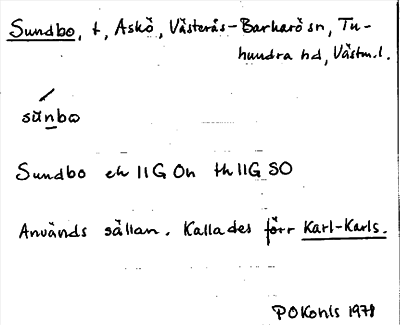 Sundbo, t, Askö, Västerås-Barkarö sn, Tu-
hundra hd, Västm.l.
sŭnbω
Sundbo ek 11G On th 11G SO
Används sällan. Kallades förr Karl-Karls.
P O Kohls 1978